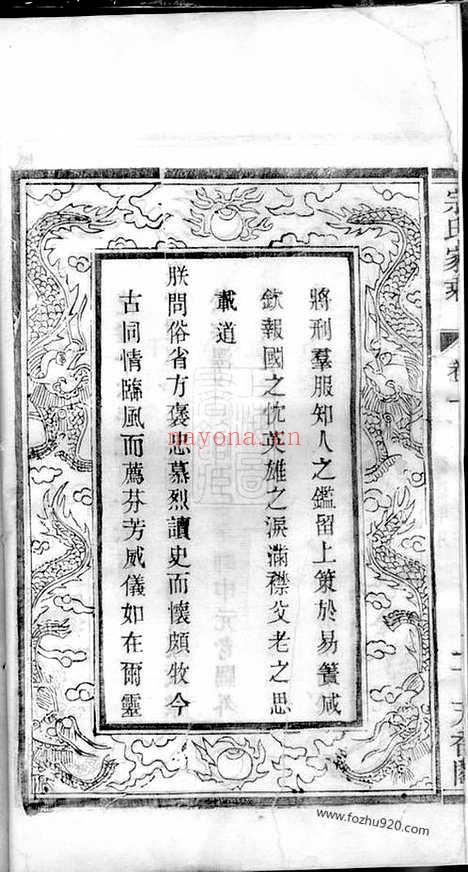 宗氏家乘
卷一
將刑羣服知人之鑑留上策於易簀咸
欽報國之忱英雄之淚滿襟父老之思
載道
朕問俗省方褒忠慕烈讀史而懷頗牧今
古同情臨風而薦芬芳威儀如在爾靈
nayona.cn
www.fozhu920.com